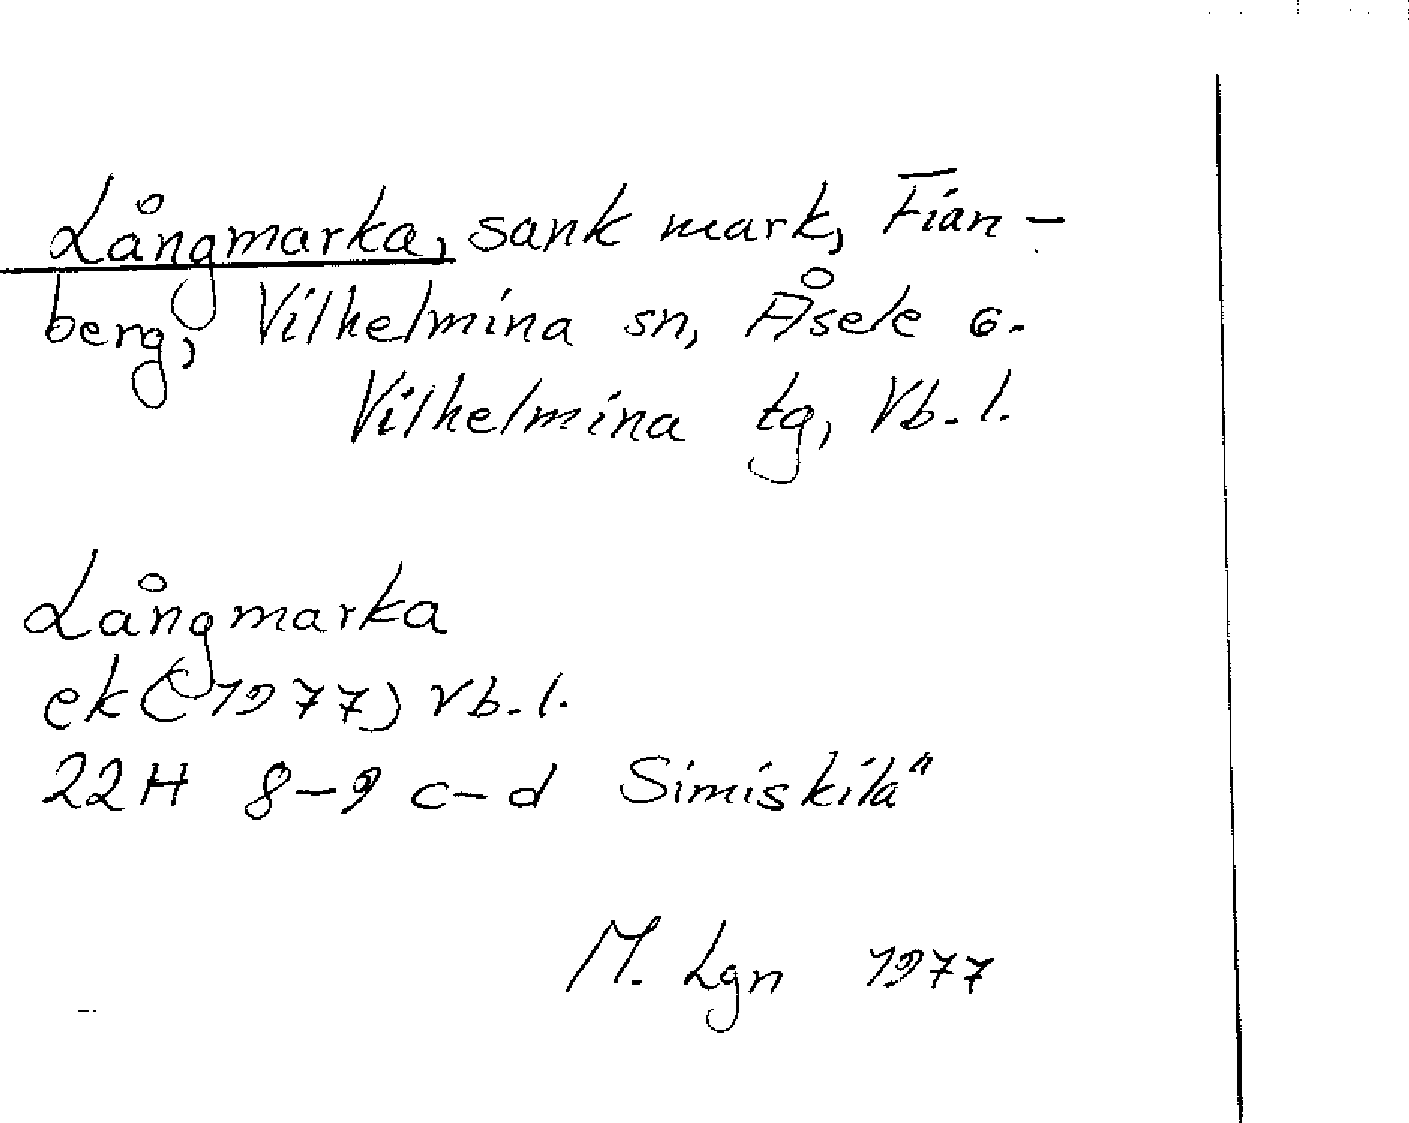 Långmarka, sank mark, Fian-
berg, Vilhelmina sn, Åsele o.
Vilhelmina tg, Vb. l.
Långmarka
ek (1977) Vb. l.
22H 8-9 c-d Simiskilä
M. Lgn 1977